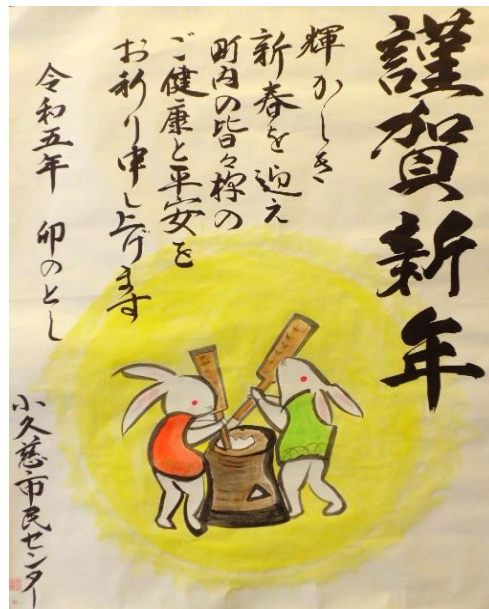 謹賀新年
輝かしき
新春を迎え
町内の皆々様の
ご健康と平安を
お祈り申し上げます
令和五年 卯のとし
小久慈市民センター